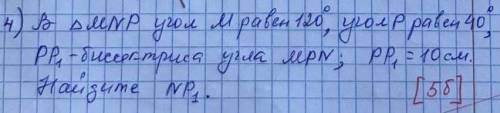 4) В △MNP угол M равен 120°, угол P равен 40°,
PP₁-биссектриса угла MPN; PP₁ = 10 см.
Найдите NP₁. [5б]